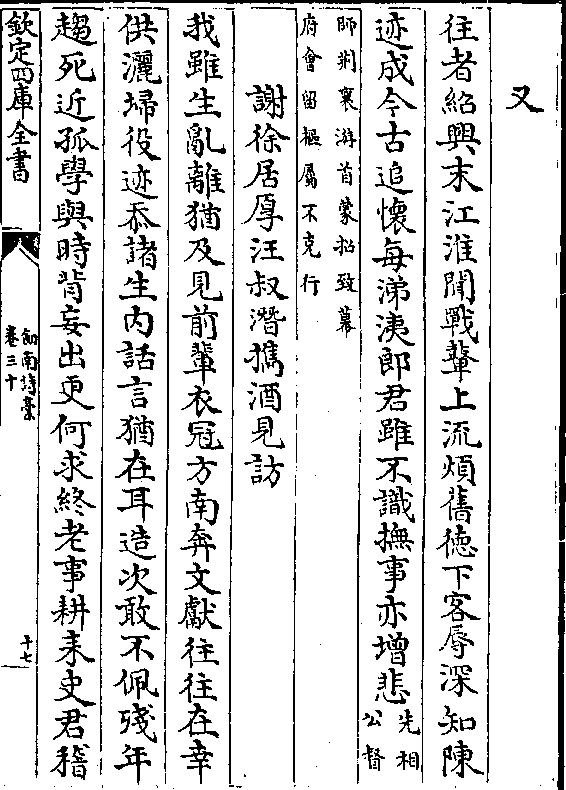 又
往者紹興末江淮聞戰鼙上流煩舊徳下客辱深知陳
迹成今古追懐每涕洟郎君雖不識撫事亦增悲先相公督
師荆襄游首蒙招致幕
府會留樞屬不克行
謝徐居厚汪叔潛㩦酒見訪
我雖生亂離猶及見前輩衣冠方南奔文獻往往在幸
供灑埽役迹忝諸生内話言猶在耳造次敢不佩殘年
趨死近孤學與時背妄出更何求終老事耕耒史君稽
欽定四庫全書
劍南詩稾
卷三十
十七